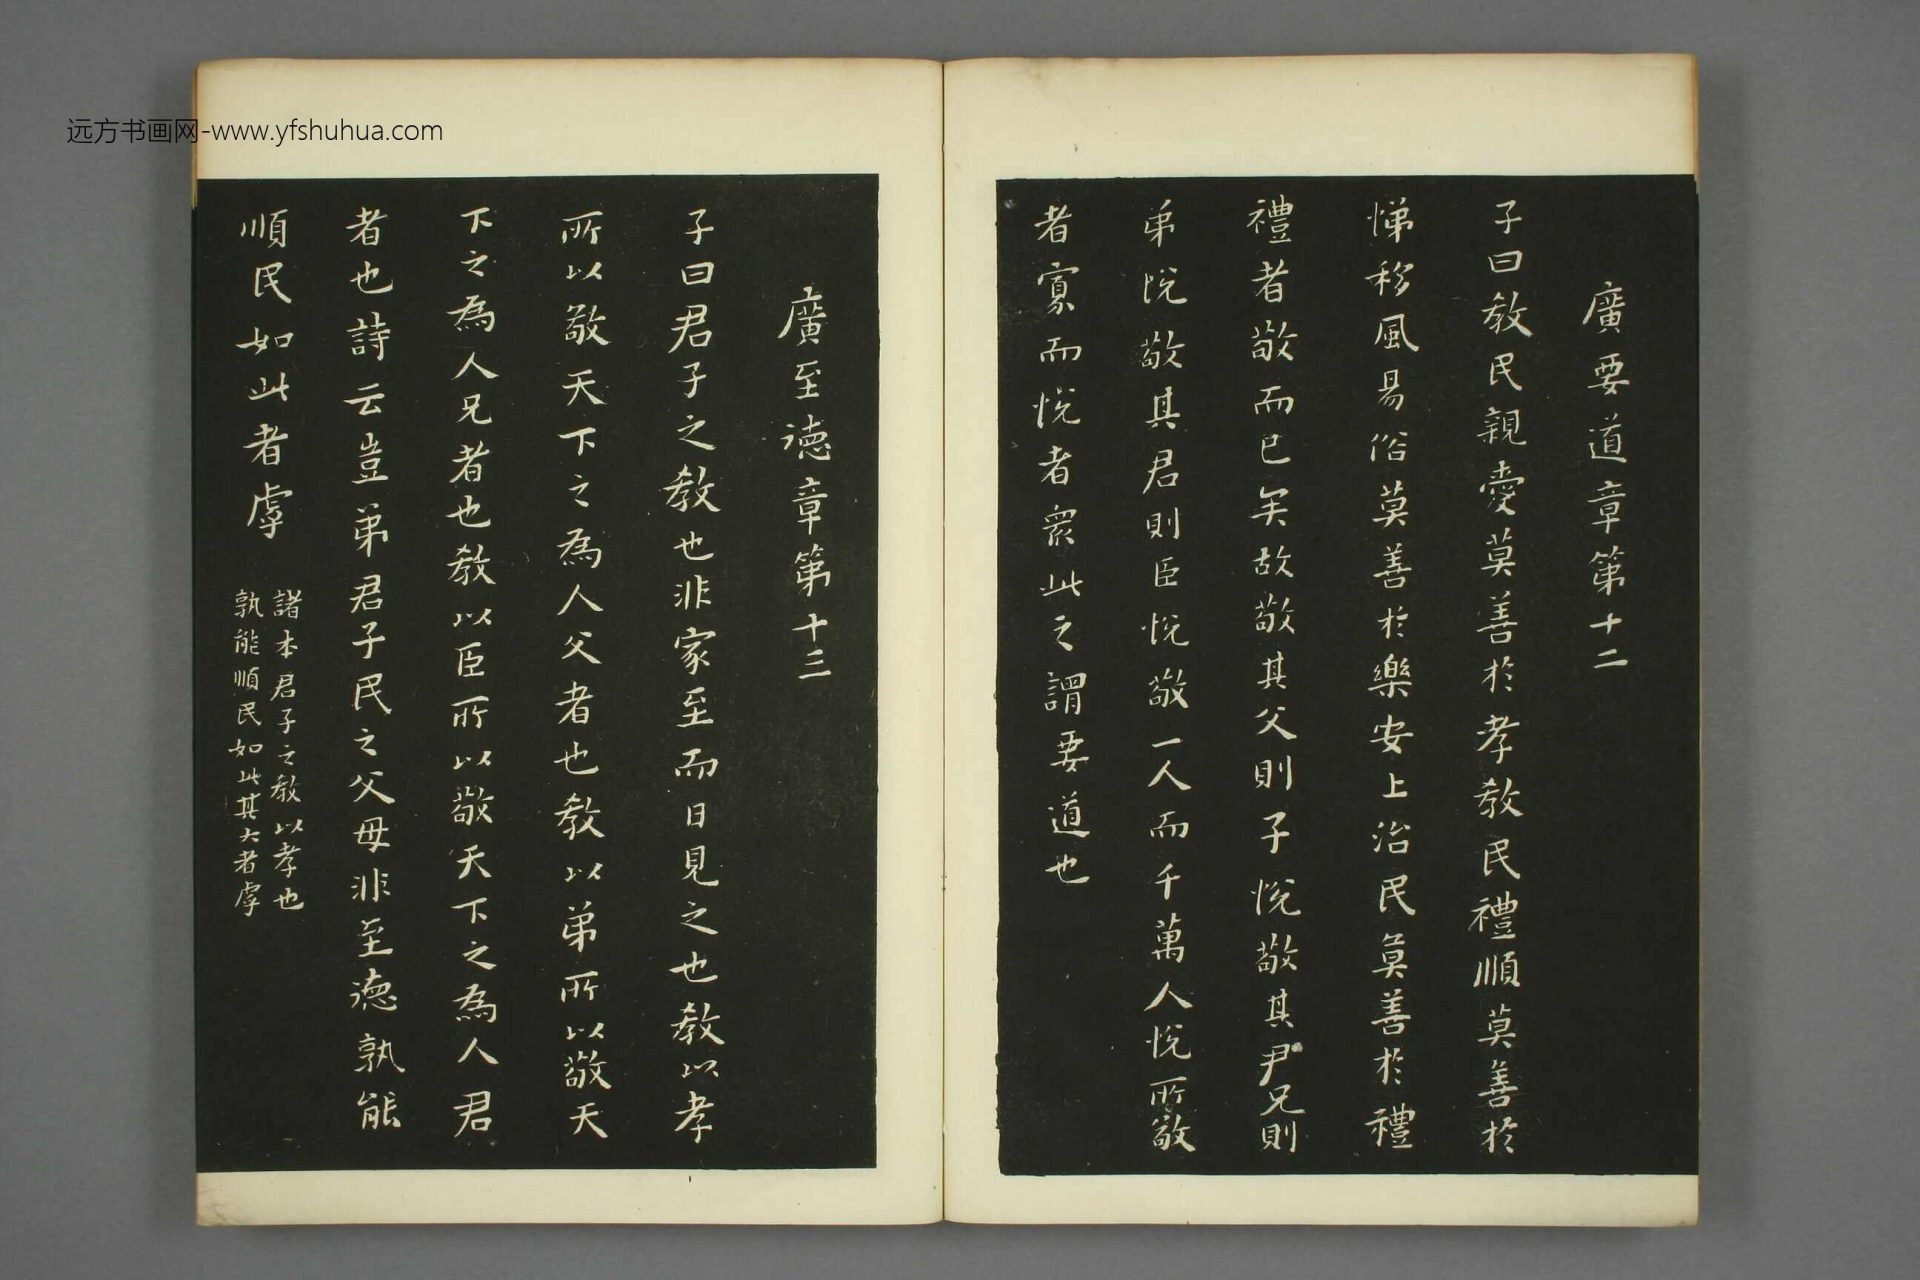 远方书画网-www.yfshuhua.com
廣要道章第十二
子曰教民親愛莫善於孝教民禮順莫善於
悌移風易俗莫善於樂安上治民莫善於禮
禮者敬而已矣故敬其父則子悅敬其尹兄則
弟悅敬其君則臣悅敬一人而千萬人悅所敬
者寡而悅者衆此之謂要道也
廣至德章第十三
子曰君子之教也非家至而日見之也教以孝
所以敬天下之為人父者也教以弟所以敬天
下之為人兄者也教以臣所以敬天下之為人君
者也詩云豈弟君子民之父母非至德孰能
順民如此者虖
諸本君子之教以孝也
孰能順民如此其大者虖